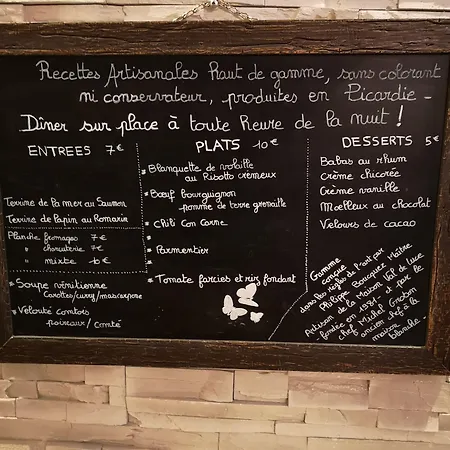 Recettes Artisanales haut de gamme, sans colorant
ni conservateur, produites en Picardie -
Dîner sur place à toute heure de la nuit !
ENTREES 7€
Terrine de la mer au Saumon
Terrine de lapin au Romarin
Planche fromages 7€
" charcuterie 7€
" mixte 10€
* Soupe vénitienne
Carottes/curry/mascarpone
* Velouté comtois
poireaux/Comté
PLATS 10€
* Blanquette de volaille
au Risotto crémeux
* Bœuf bourguignon
pomme de terre grenaille
* Chili Con Carne
*
* Parmentier
*
* Tomate farcies et riz fondant
DESSERTS 5€
Babas au rhum
Crème chicorée
Crème vanille
Moelleux au chocolat
Velours de cacao
Gamme conçue
dans les règles de l'art par
Philippe Bousquet Maître
Artisan de la Maison de Luce
fondée en 1931 et par le
chef Michel
ancien chef à la
maison blanche -